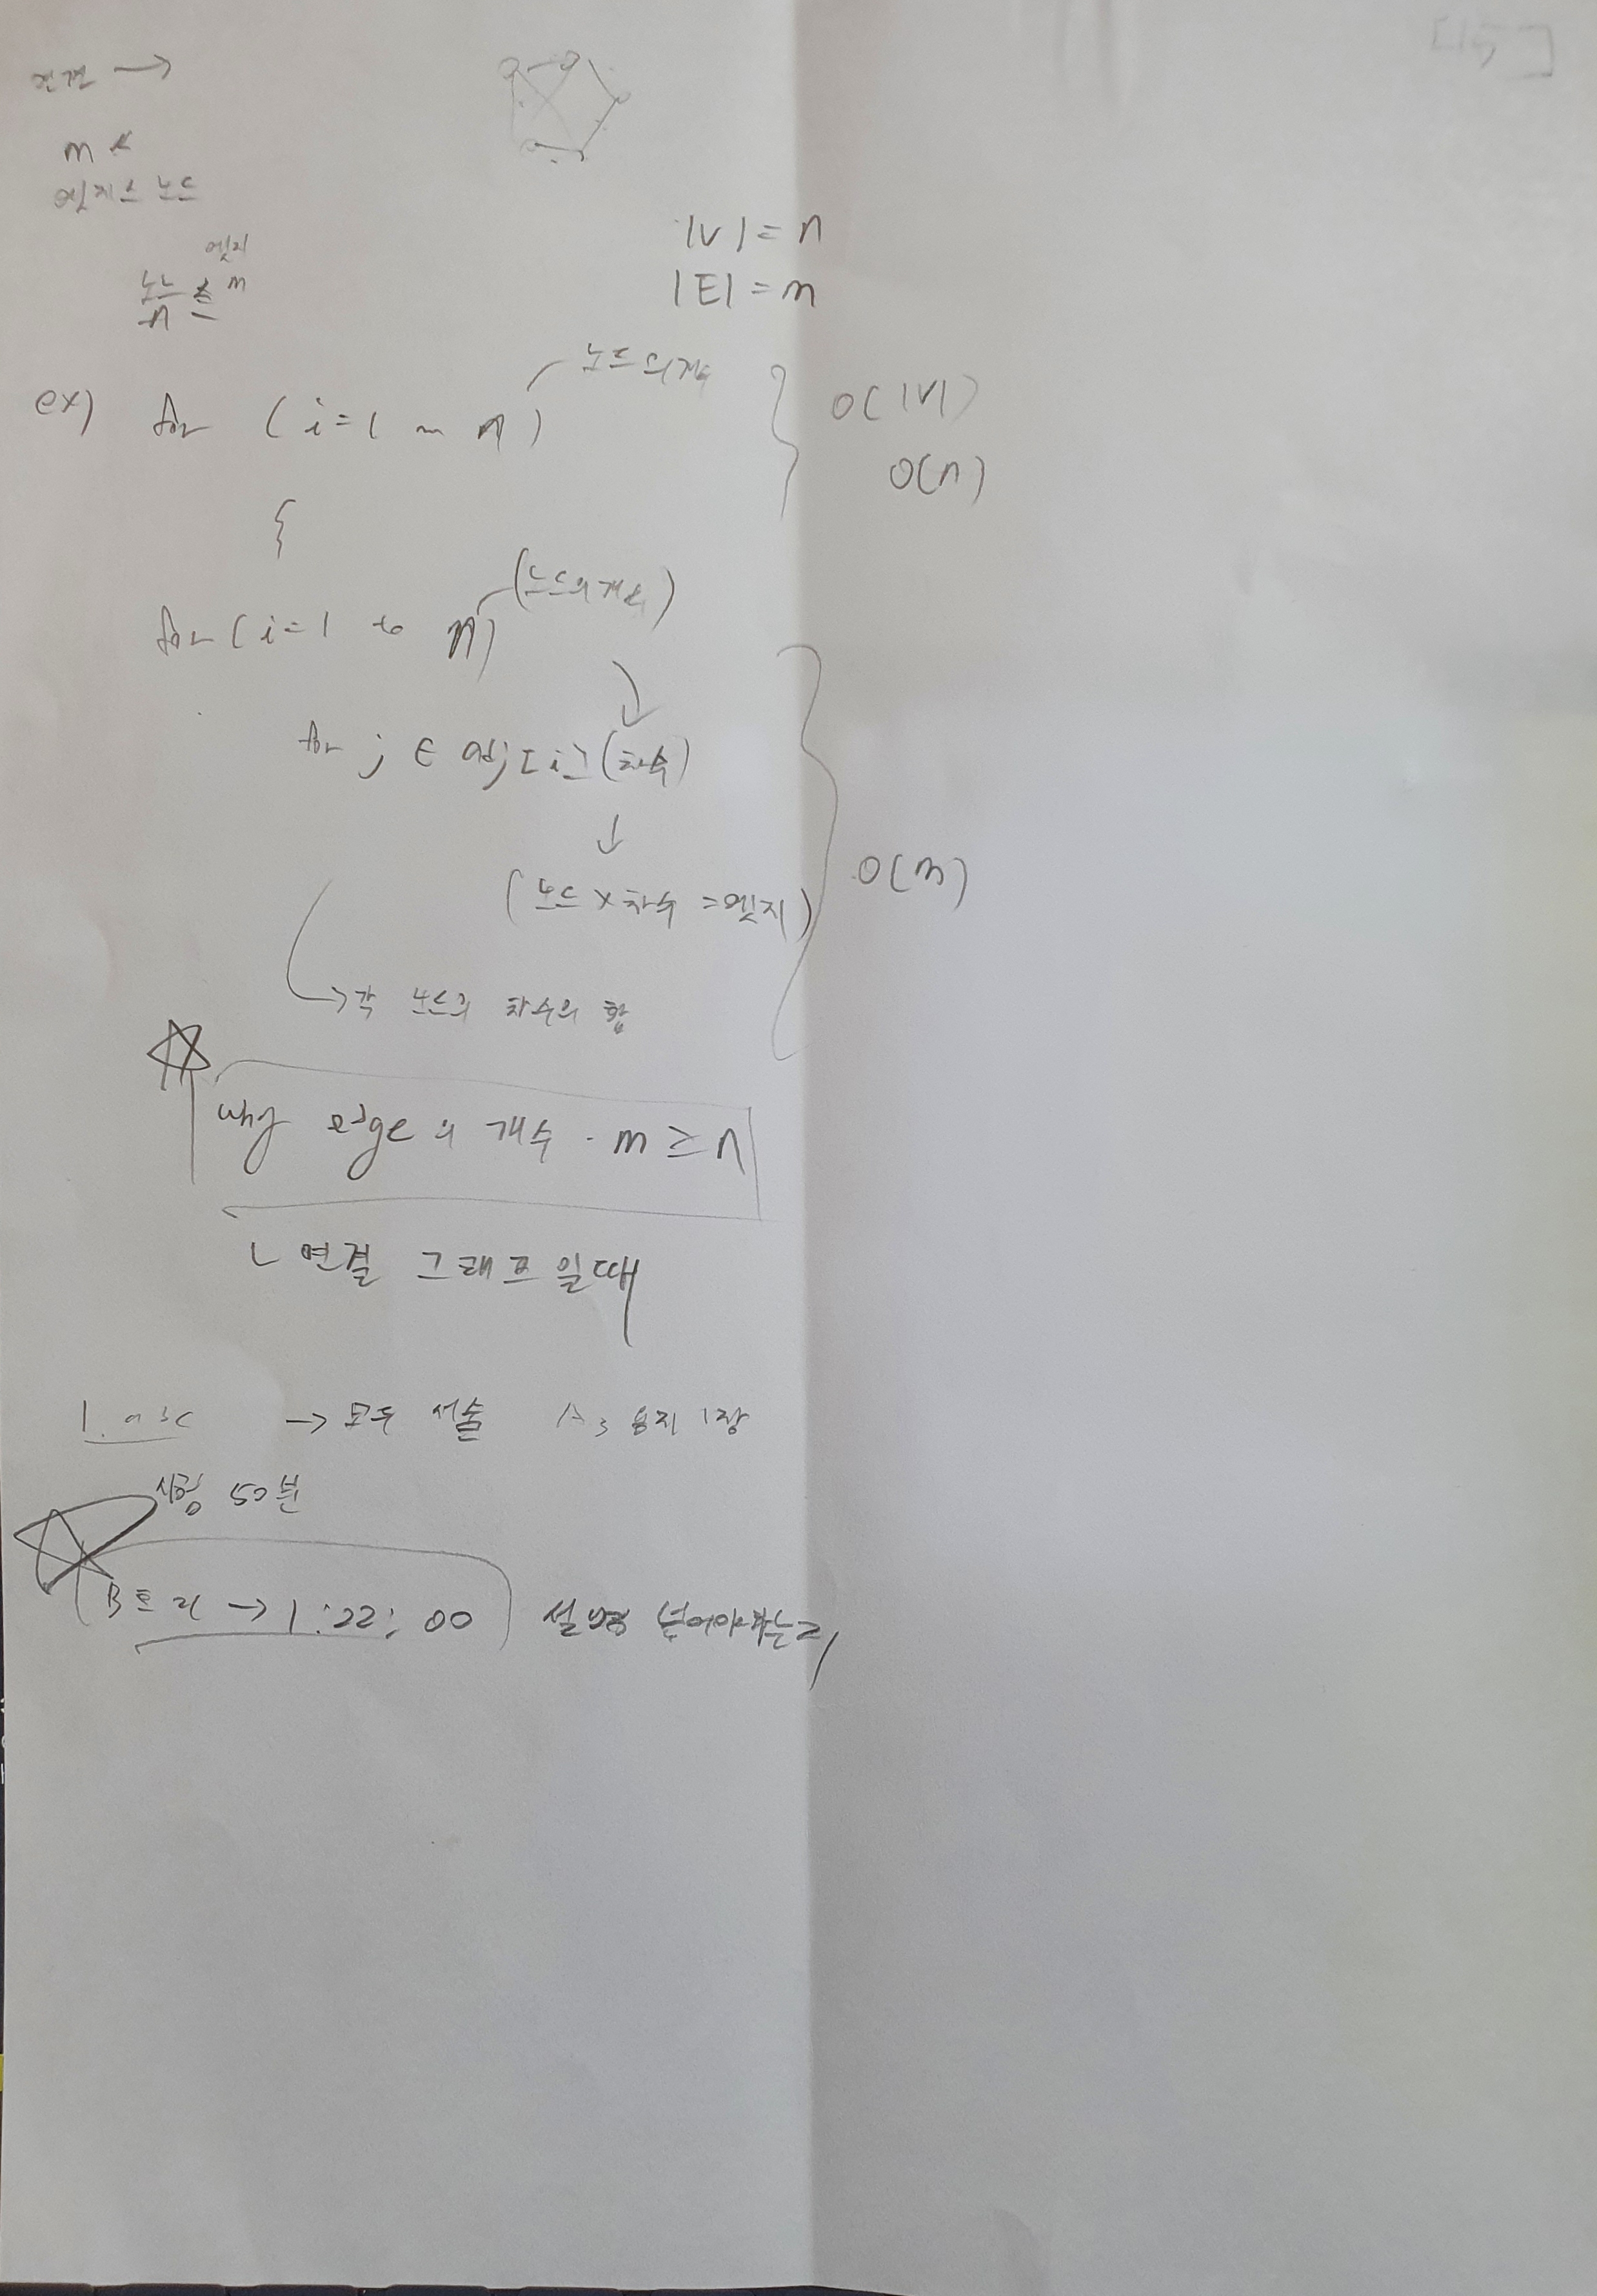 m <
엣지 ≤ 노드
엣지
노드 ≤ m
n
|V| = n
|E| = m
노드의 개수
ex) for (i=1 ~ n)
O(|V|)
O(n)
{
(노드의 개수)
for (i=1 to n)
for j ∈ adj[i] (차수)
(노드 x 차수 = 엣지)
O(m)
→ 각 노드의 차수의 합
why edge의 개수 · m ≥ n
ㄴ 연결 그래프일때
→ 모두 서술 A3 용지 1장
시험 50분
B트리 → 1:22:00 설명